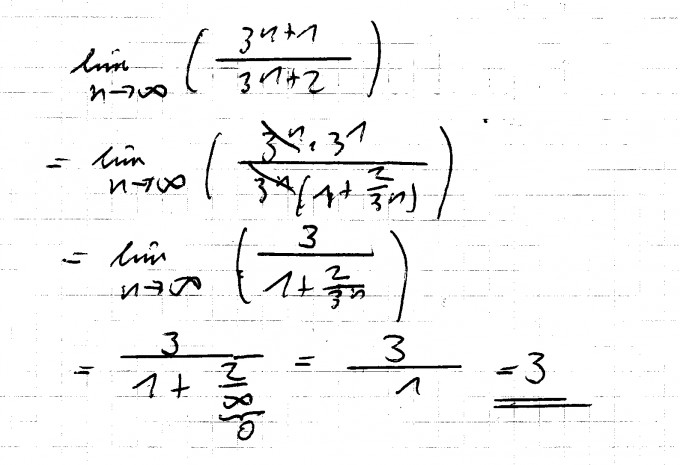 lim n→∞ ( 3^{n+1} / 3^n+2 )
= lim n→∞ ( 3^n · 3^1 / 3^n (1 + 2/3^n) )
= lim n→∞ ( 3 / 1 + 2/3^n )
= 3 / 1 + 2/∞ = 3 / 1 = 3
0